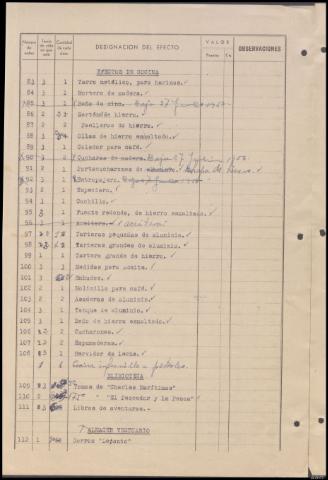 Número de orden Tanto de vida en que está Cantidad de cada cosa DESIGNACION DEL EFECTO VALOR OBSERVACIONES
Pesetas Cs.
EFECTOS DE COCINA
83 3 1 Tarro metálico, para harinas.
84 3 1 Mortero de madera.
85 3 1 Baño de zinc. Baja 27 Junio 1950
86 2 Sartén de hierro.
87 3 2 Paelleros de hierro.
88 3 Ollas de hierro esmaltado.
89 3 1 Colador para café.
90 3 1 Cucharas de madera. Baja 27 Junio 1950.
91 2 1 Portacucharones de
92 3 1 Entrepajera. Baja 27 Junio 1950
93 2 1 Espeedera.
94 3 1 Cuchillo.
95 3 Fuente redonda, de hierro esmaltado.
96 3 1 Aceitera.
97 Tarteras pequeñas de aluminio.
98 Tarteras grandes de aluminio.
99 1 1 Tartera grande de hierro.
100 3 3 Medidas para aceite.
101 3 Embudos.
102 2 1 Molinillo para café.
103 2 2 Asadoras de aluminio.
104 3 1 Tanque de aluminio.
105 3 1 Baño de hierro esmaltado.
106 Cucharones.
107 Espumaderas.
108 1 Hervidor de leche.
1 1 Cocina infiernillo a petroleo.
BIBLIOTECA
109 Tomos de "Charlas Marítimas"
110 " "El pescador y la Pesca"
111 Libros de aventuras.-
ALMACEN VESTUARIO
112 1 Gorros "Lepanto"